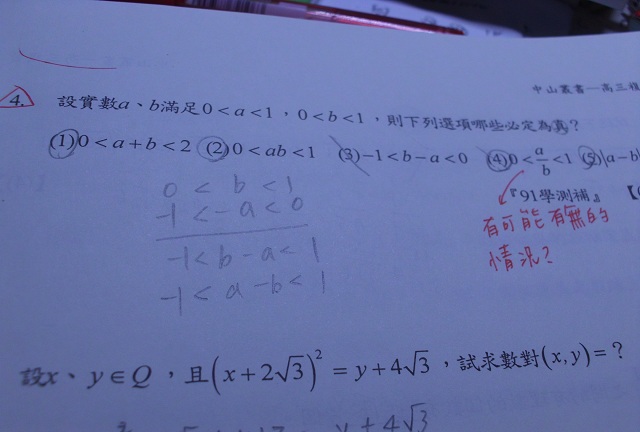 中山叢書—高三複
4. 設實數a、b滿足0<a<1，0<b<1，則下列選項哪些必定為真？
(1)0<a+b<2 (2)0<ab<1 (3)-1<b-a<0 (4)0<a/b<1 (5)|a-b|
『91學測補』
有可能有無的
情況？
0 < b < 1
-1 < -a < 0
-1 < b - a < 1
-1 < a - b < 1
設x、y∈Q，且(x+2√3)²=y+4√3，試求數對(x,y)=？
y+4√3